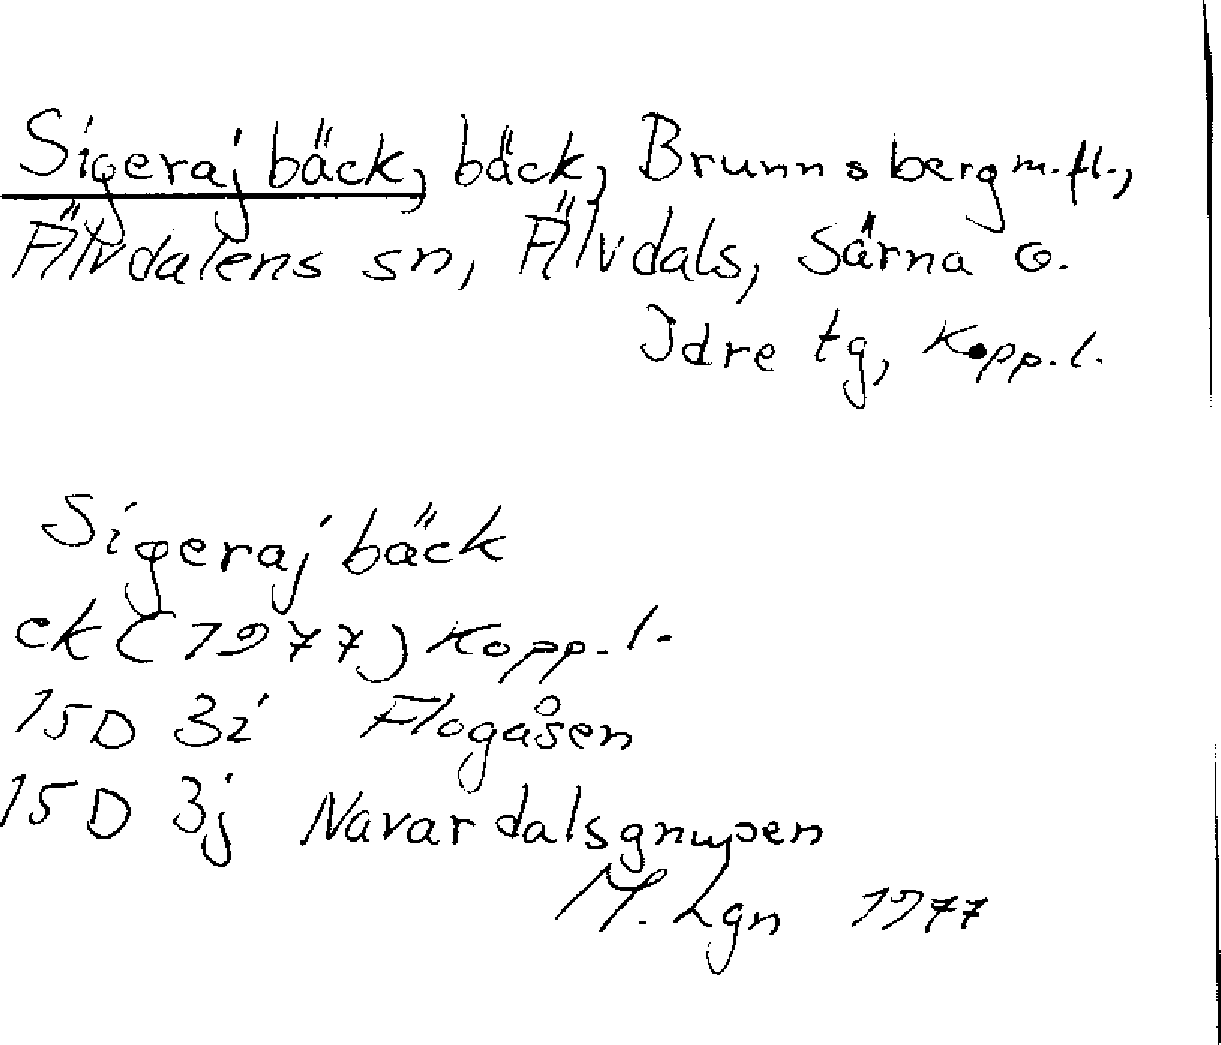 Sigerajbäck, bäck, Brunnsberg m.fl.,
Älvdalens sn, Älvdals, Särna o.
Idre tg, Kopp.l.
Sigerajbäck
ek (1977) Kopp.l.
15D 3i Flogåsen
15D 3j Navardalsgnupen
M. Lgn 1977